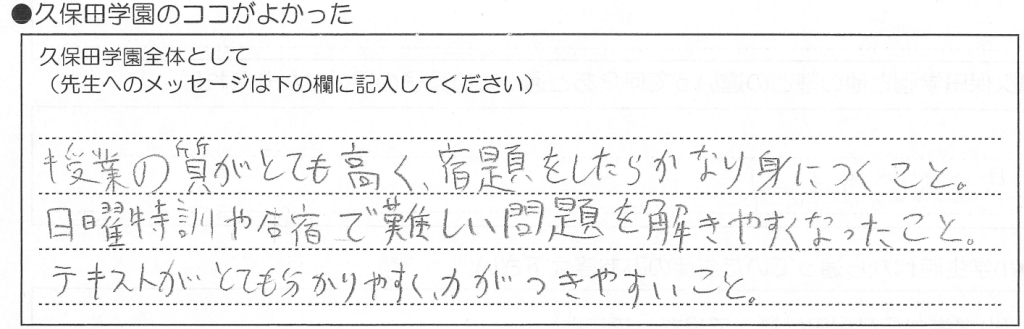 ●久保田学園のココがよかった
久保田学園全体として
(先生へのメッセージは下の欄に記入してください)
授業の質がとても高く、宿題をしたらかなり身につくこと。
日曜特訓や合宿で難しい問題を解きやすくなったこと。
テキストがとても分かりやすく、力がつきやすいこと。